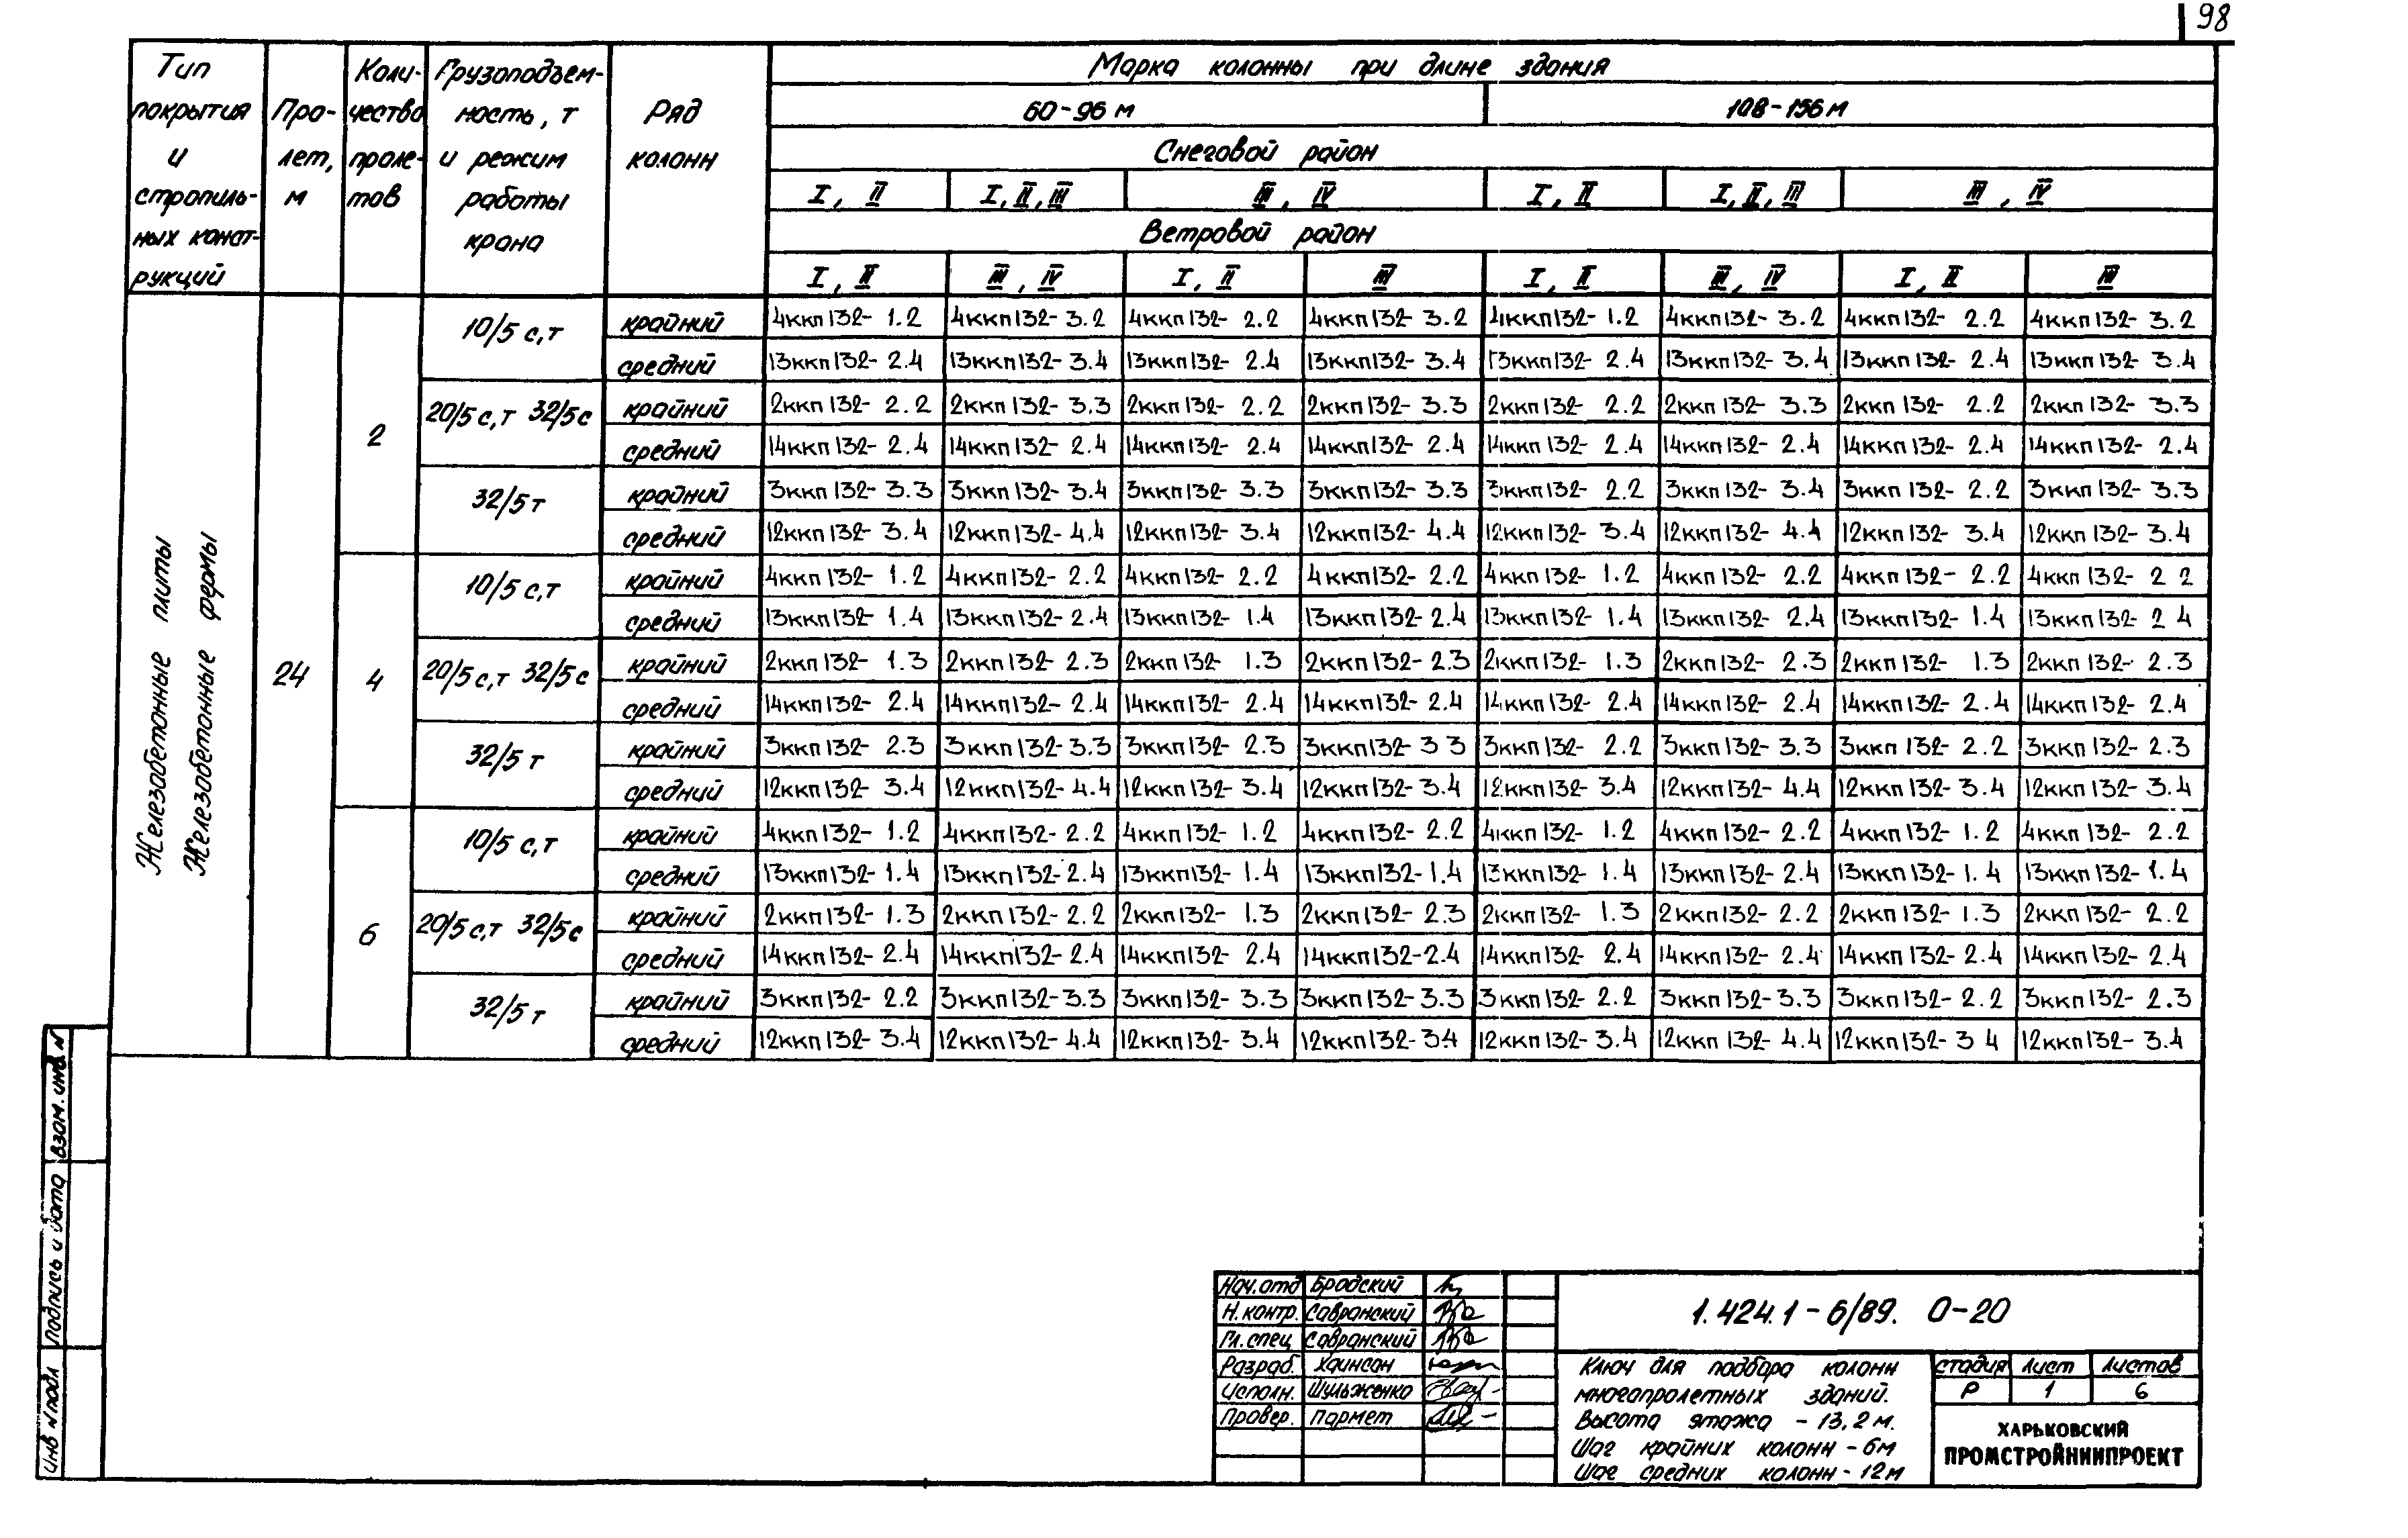 98
Тип покрытия и стропильных конструкций
Пролет, м
Количество пролетов
Грузоподъемность, т и режим работы крана
Ряд колонн
Марка колонны при длине здания
60-96 м 108-156 м
Снеговой район
I, II I, II, III III, IV I, II I, II, III III, IV
Ветровой район
I, II III, IV I, II III I, II III, IV I, II III
Железобетонные плиты
Железобетонные фермы
24
2
10/5 с,т крайний 4ккп132-1.2 4ккп132-3.2 4ккп132-2.2 4ккп132-3.2 4ккп132-1.2 4ккп132-3.2 4ккп132-2.2 4ккп132-3.2
средний 13ккп132-2.4 13ккп132-3.4 13ккп132-2.4 13ккп132-3.4 13ккп132-2.4 13ккп132-3.4 13ккп132-2.4 13ккп132-3.4
20/5 с,т 32/5 с крайний 2ккп132-2.2 2ккп132-3.3 2ккп132-2.2 2ккп132-3.3 2ккп132-2.2 2ккп132-3.3 2ккп132-2.2 2ккп132-3.3
средний 14ккп132-2.4 14ккп132-2.4 14ккп132-2.4 14ккп132-2.4 14ккп132-2.4 14ккп132-2.4 14ккп132-2.4 14ккп132-2.4
32/5 т крайний 3ккп132-3.3 3ккп132-3.4 3ккп132-3.3 3ккп132-3.3 3ккп132-2.2 3ккп132-3.4 3ккп132-2.2 3ккп132-3.3
средний 12ккп132-3.4 12ккп132-4.4 12ккп132-3.4 12ккп132-4.4 12ккп132-3.4 12ккп132-4.4 12ккп132-3.4 12ккп132-3.4
4
10/5 с,т крайний 4ккп132-1.2 4ккп132-2.2 4ккп132-2.2 4ккп132-2.2 4ккп132-1.2 4ккп132-2.2 4ккп132-2.2 4ккп132-2 2
средний 13ккп132-1.4 13ккп132-2.4 13ккп132-1.4 13ккп132-2.4 13ккп132-1.4 13ккп132-2.4 13ккп132-1.4 13ккп132-2 4
20/5 с,т 32/5 с крайний 2ккп132-1.3 2ккп132-2.3 2ккп132-1.3 2ккп132-2.3 2ккп132-1.3 2ккп132-2.3 2ккп132-1.3 2ккп132-2.3
средний 14ккп132-2.4 14ккп132-2.4 14ккп132-2.4 14ккп132-2.4 14ккп132-2.4 14ккп132-2.4 14ккп132-2.4 14ккп132-2.4
32/5 т крайний 3ккп132-2.3 3ккп132-3.3 3ккп132-2.3 3ккп132-3 3 3ккп132-2.2 3ккп132-3.3 3ккп132-2.2 3ккп132-2.3
средний 12ккп132-3.4 12ккп132-4.4 12ккп132-3.4 12ккп132-3.4 12ккп132-3.4 12ккп132-4.4 12ккп132-3.4 12ккп132-3.4
6
10/5 с,т крайний 4ккп132-1.2 4ккп132-2.2 4ккп132-1.2 4ккп132-2.2 4ккп132-1.2 4ккп132-2.2 4ккп132-1.2 4ккп132-2.2
средний 13ккп132-1.4 13ккп132-2.4 13ккп132-1.4 13ккп132-1.4 13ккп132-1.4 13ккп132-2.4 13ккп132-1.4 13ккп132-1.4
20/5 с,т 32/5 с крайний 2ккп132-1.3 2ккп132-2.2 2ккп132-1.3 2ккп132-2.3 2ккп132-1.3 2ккп132-2.2 2ккп132-1.3 2ккп132-2.2
средний 14ккп132-2.4 14ккп132-2.4 14ккп132-2.4 14ккп132-2.4 14ккп132-2.4 14ккп132-2.4 14ккп132-2.4 14ккп132-2.4
32/5 т крайний 3ккп132-2.2 3ккп132-3.3 3ккп132-3.3 3ккп132-3.3 3ккп132-2.2 3ккп132-3.3 3ккп132-2.2 3ккп132-2.3
средний 12ккп132-3.4 12ккп132-4.4 12ккп132-3.4 12ккп132-3.4 12ккп132-3.4 12ккп132-4.4 12ккп132-3 4 12ккп132-3.4
Взам. инв N
Подпись и дата
Инв N подл
Нач. отд Бродский
Н. контр. Савранский
Гл. спец Савранский
Разраб. Хаинсон
Исполн. Шульженко
Провер. Пармет
1.424.1-6/89. 0-20
Ключ для подбора колонн
многопролетных зданий.
Высота этажа - 13,2 м.
Шаг крайних колонн - 6м
Шаг средних колонн - 12м
стадия лист листов
Р 1 6
ХАРЬКОВСКИЙ
ПРОМСТРОЙНИИПРОЕКТ